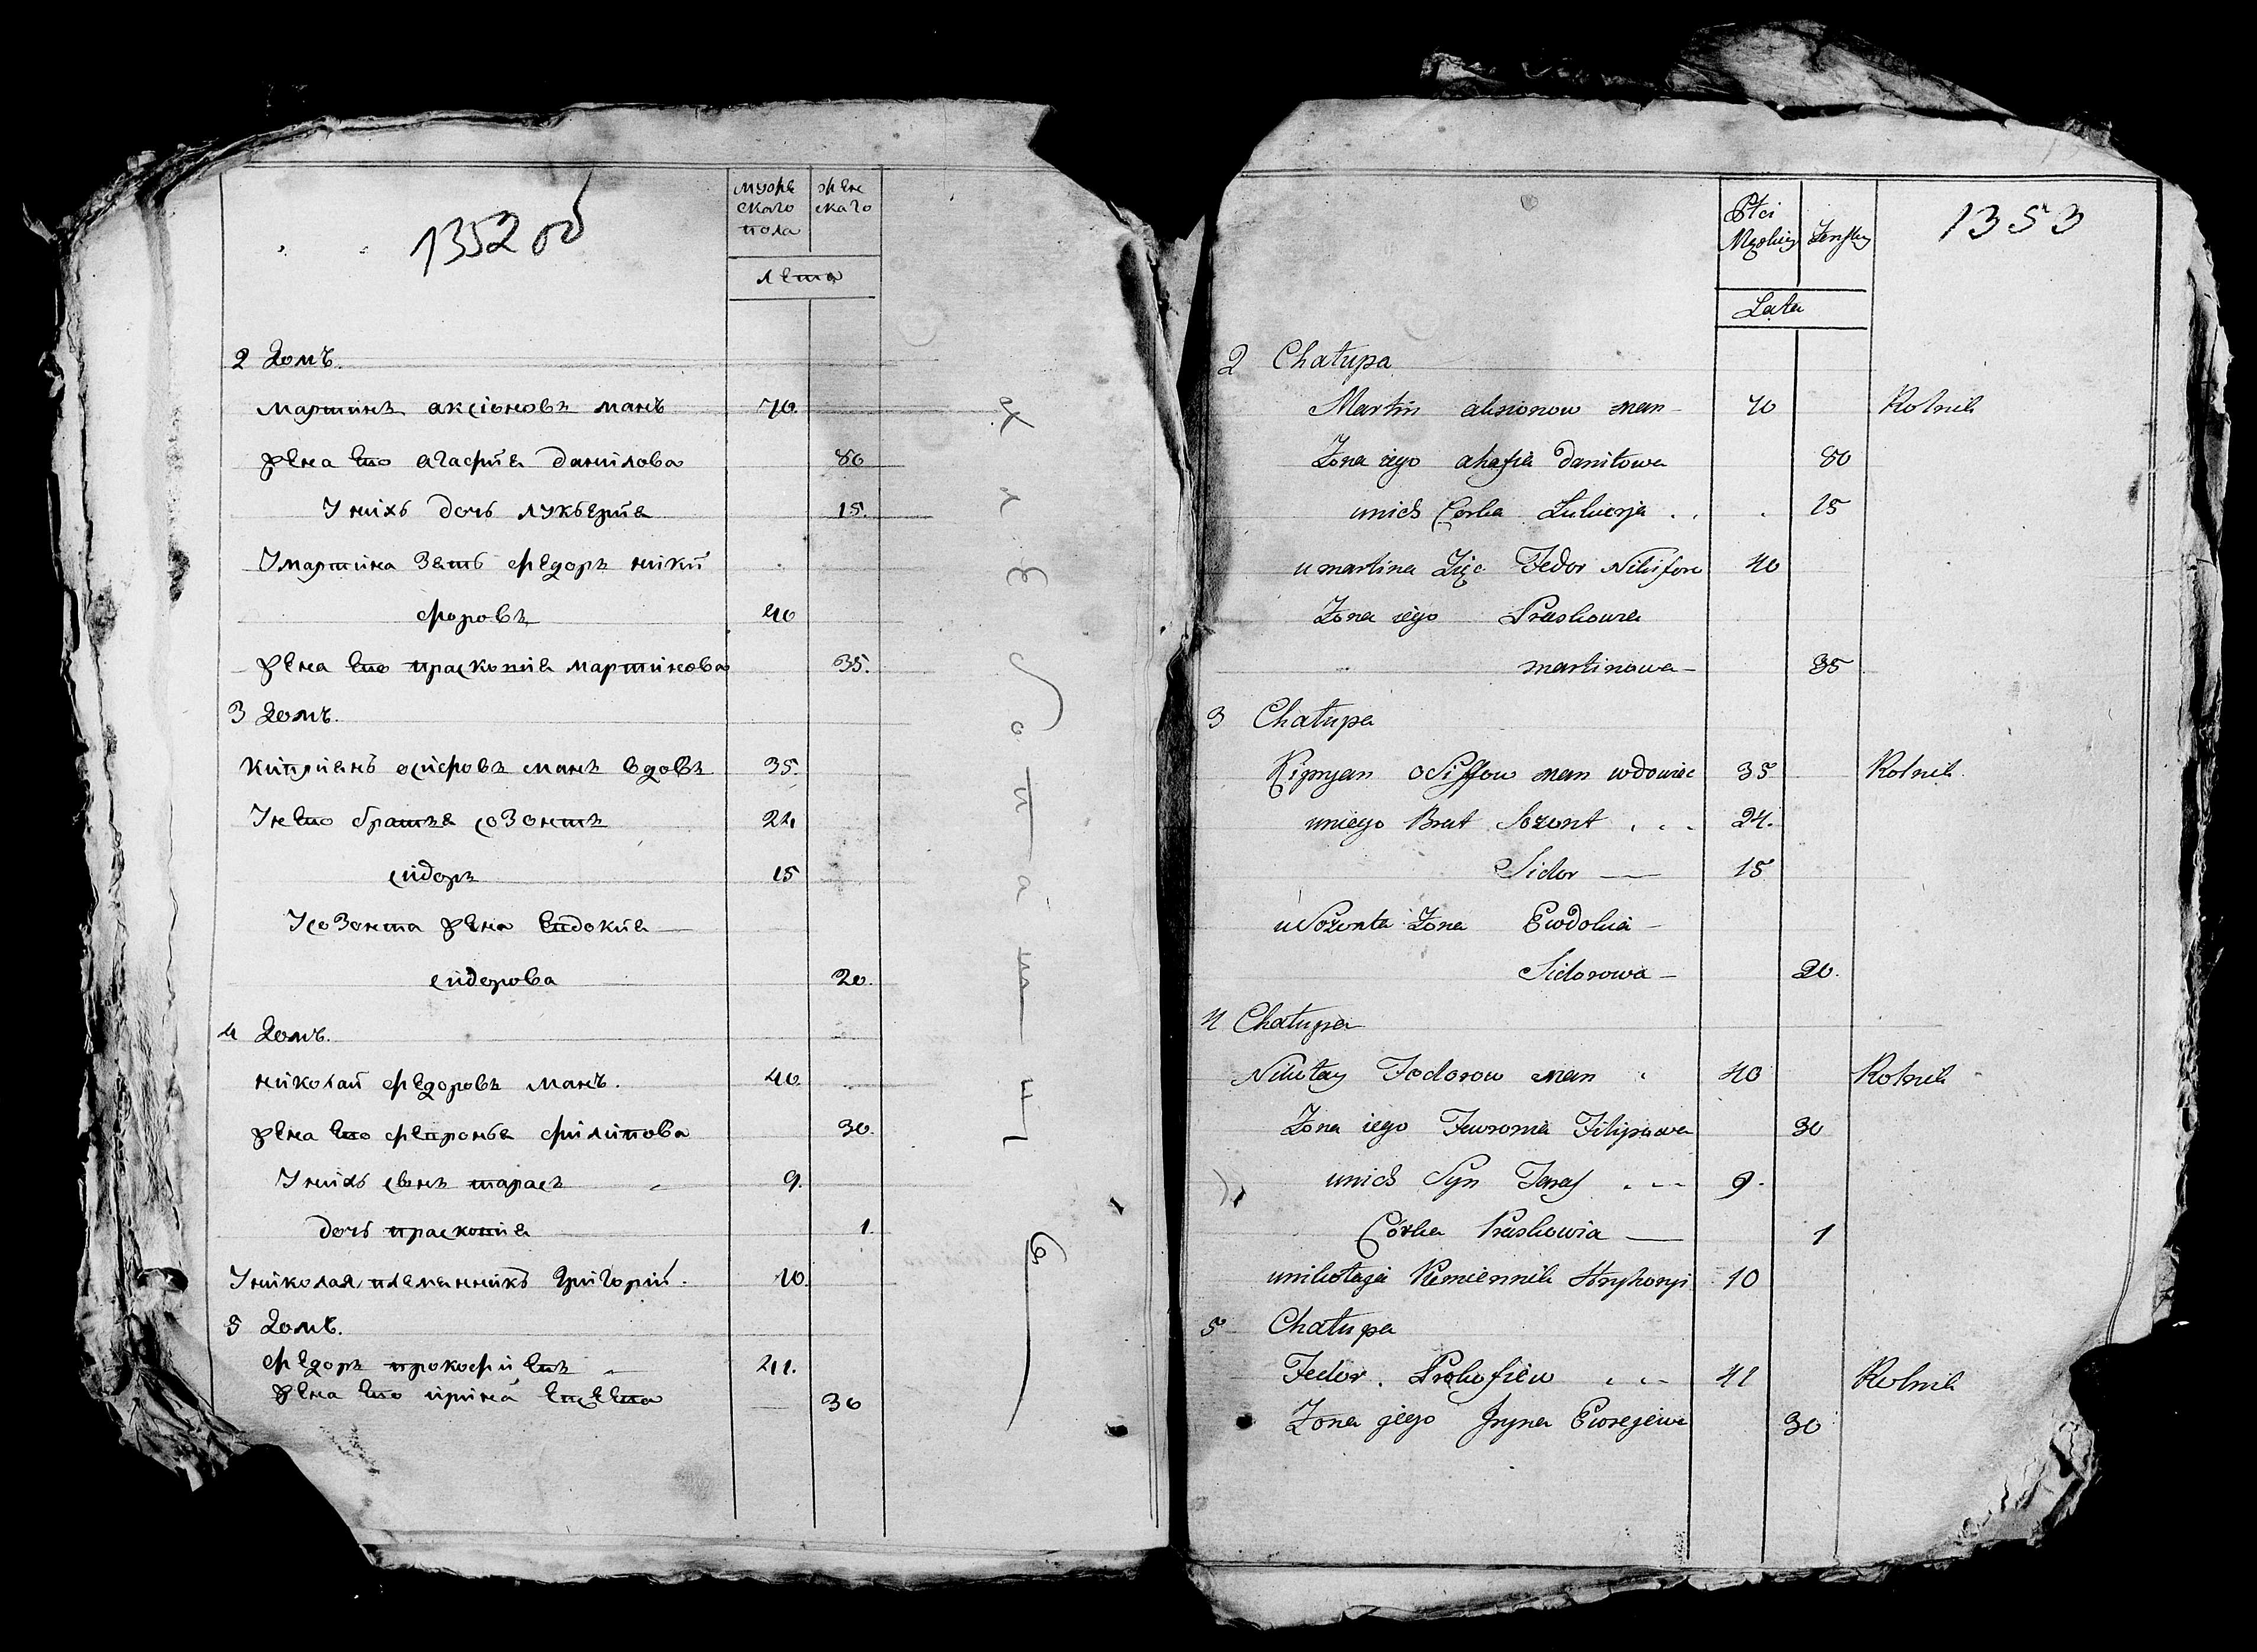 1352 об
мужескаго пола
женскаго
лета
2 Домъ.
мартинъ аксіоновъ манъ 70.
жена его агафия данилова 80
У нихъ дочь лукьерия 15.
У мартина зеть федоръ ники
форовъ 40
жена его прасковия мартинова 35.
3 Домъ.
киприянъ осифовъ манъ вдовъ 35.
У него братья созонтъ 24
сидоръ 15
У созонта жена евдокия
сидорова 20.
4 Домъ.
николай федоровъ манъ. 40.
жена его февронья филипова 30.
У нихъ сынъ тарасъ 9.
дочь прасковия 1.
У николая племянникъ григорий. 10.
5 Домъ.
федоръ прокофиевъ 41.
жена его ирина евсеева 30
хлеборопаш
1353
Płci
Męskiey Żenskiey
Lata
2 Chałupa
Martin aksionow man 70 Rolnik
Żona iego ahafia daniłowa 80
unich Corka Lukierja . . . 15
u martina Zięc Fedor Nikifora 40
Żona iego Praskowia
martinowa 35
3 Chałupa
Kipryan osiffow man wdowiec 35 Rolnik.
uniego Brat Sozont . . . 24.
Sidor 15
u Sozonta Żona Ewdokia
Sidorowa 20.
4 Chałupa
Nikołay Fodorow man 40 Rolnik
Żona iego Fewronia Filipowa 30
unich Syn Taras . . . 9.
Córka Praskowia 1
unikołaja Plemiennik Hryhoryi 10
5 Chałupa
Fedor . Prokofiew . . . 41 Rolnik
Żona jego Jryna Ewsejewa 30